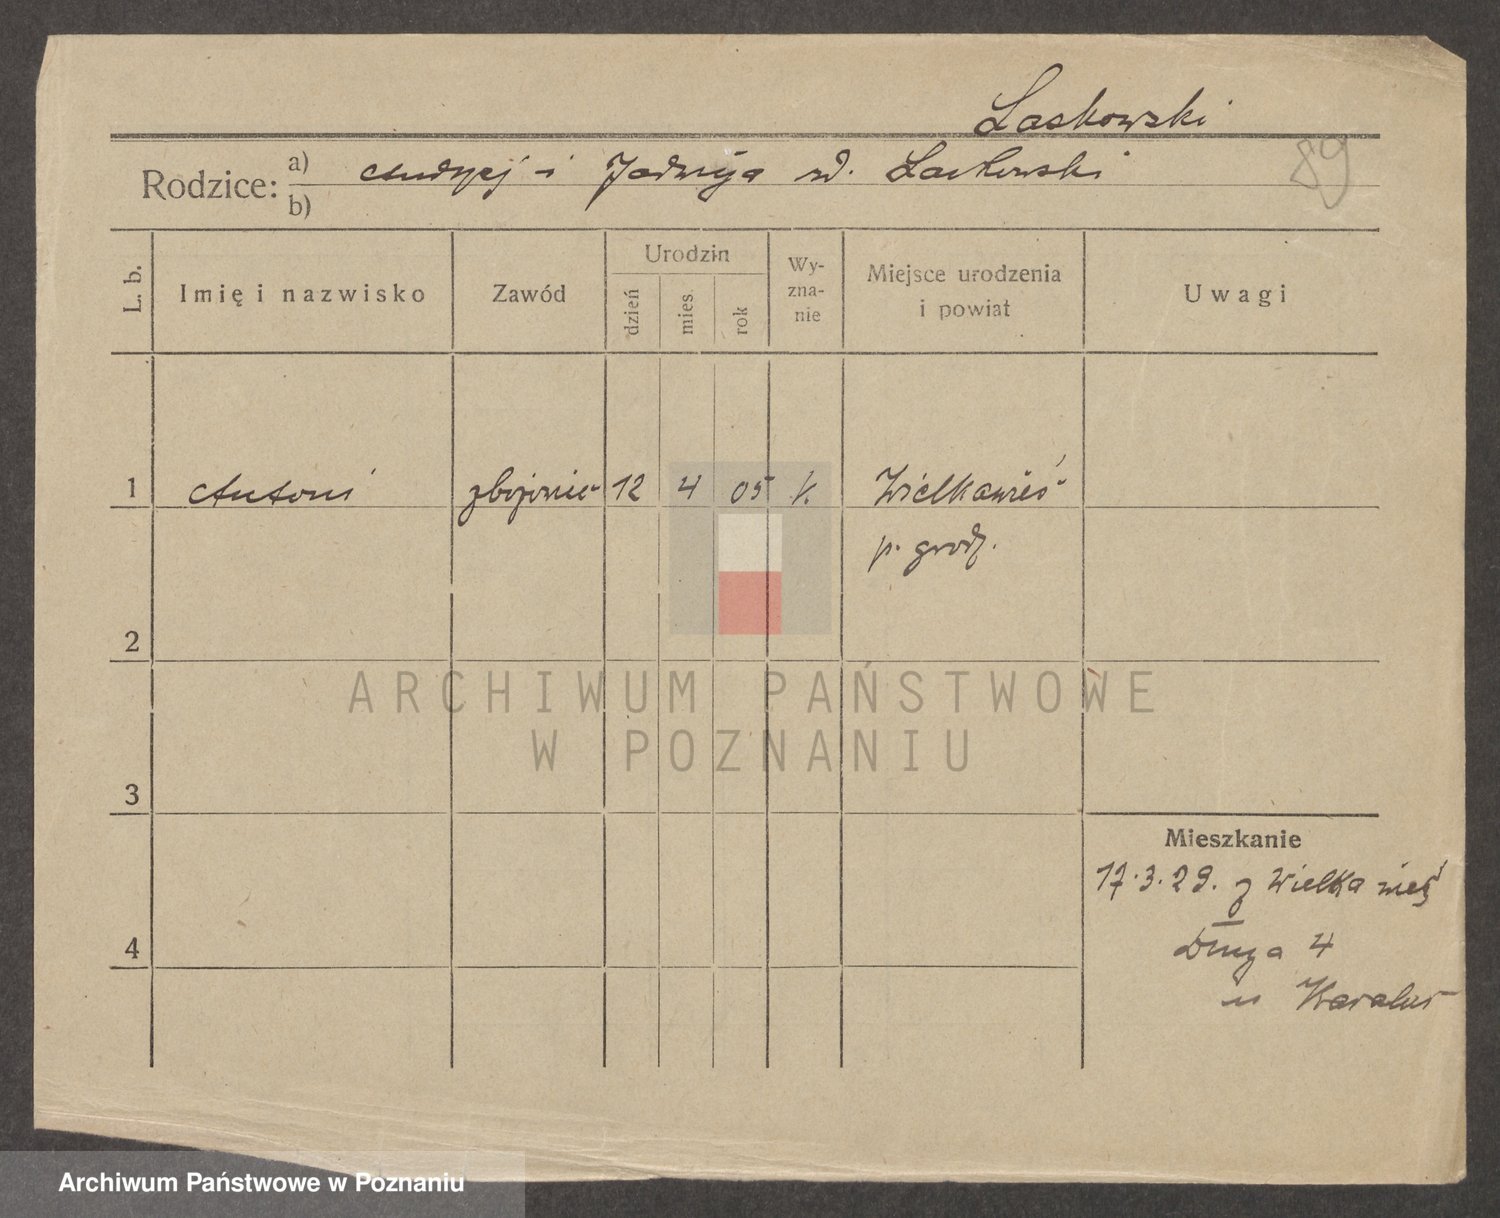 Laskowski
Rodzice: a) Andrzej i Jadwiga
b)
89
L. b.
Imię i nazwisko
Zawód
Urodzin
dzień
mies.
rok
Wy-
zna-
nie
Miejsce urodzenia
i powiat
Uwagi
1 Antoni 12 4 05 k. Wielkawieś
p. grodz.
2
ARCHIWUM PAŃSTWOWE
W POZNANIU
3
Mieszkanie
17.3.29. z Wielka wieś
4
Długa 4
u
Archiwum Państwowe w Poznaniu